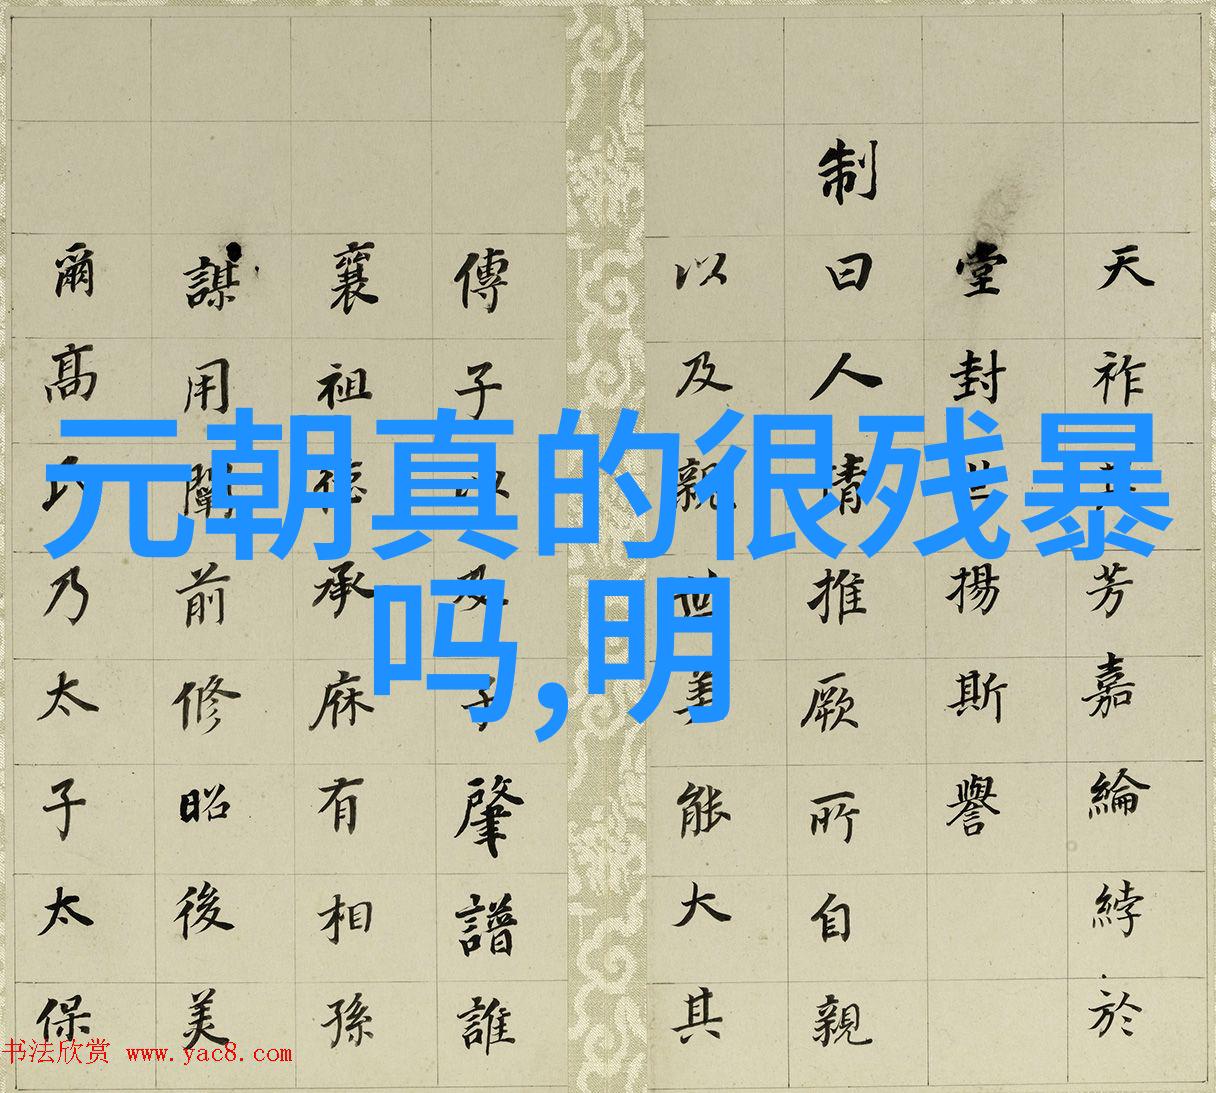 元朝真的很残暴
吗,明
天祚芳嘉綸綍於
堂封世揚斯譽
制曰人情推厥所自親
以及親世美能大其
傳子以及子肇譜誰
襄祖德承庥有相孫
謀用闡前修昭後美
爾高氏乃太子太保
书法欣赏 www.yac8.com